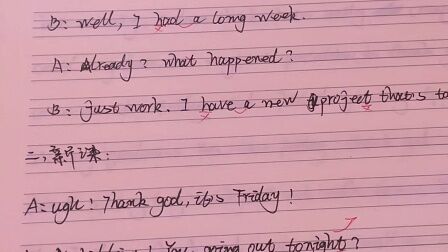 B: Well, I had a long week.
A: Already? What happened?
B: Just work. I have a new project that's to
二、新课:
A: Ugh! Thank god, it's Friday!
You going out tonight?